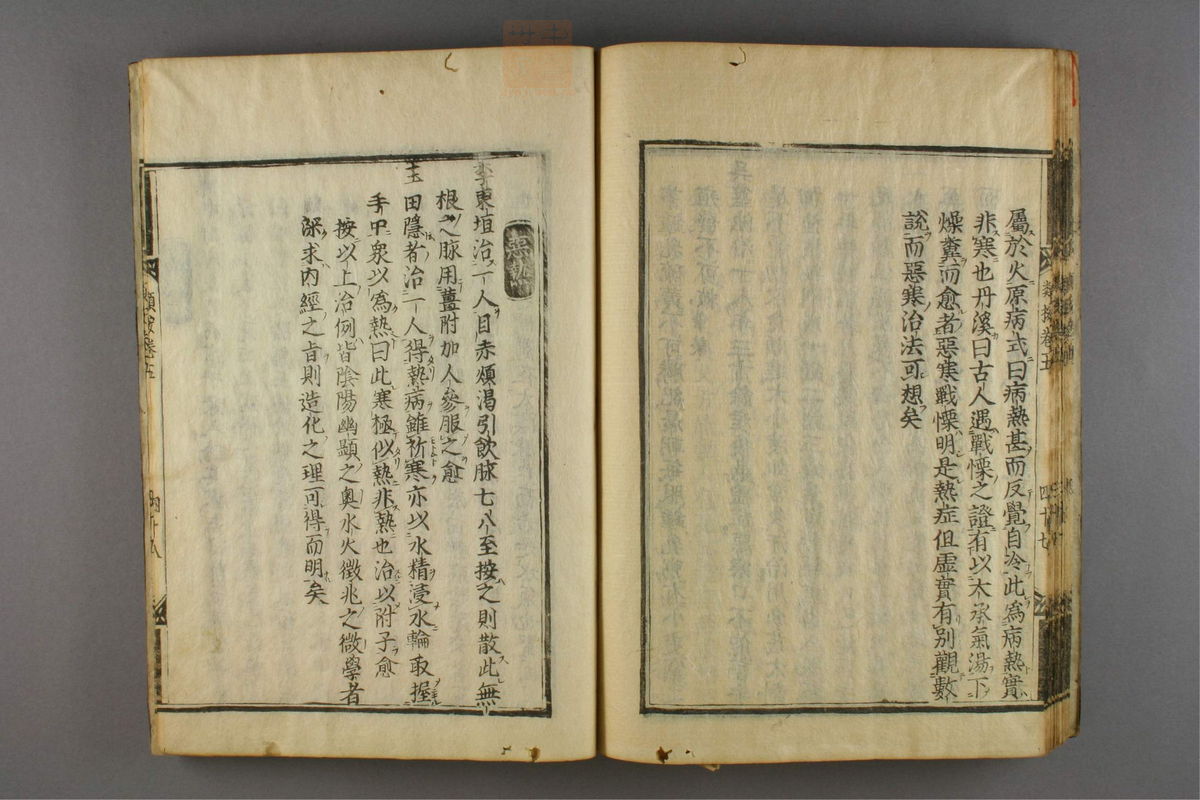 屬於火原病式曰病熱甚而反覺自冷此爲病熱實
非寒也丹溪曰古人遇戰慄之證有以大承氣湯下
燥糞而愈者惡寒戰慄明是熱症但虛實有別觀數
說而惡寒治法可想矣
類按卷五
四十七
惡熱
李東垣治一人目赤煩渴引飲脉七八至按之則散此無
根之脉用薑附加人參服之愈
玉田隱者治一人得熱病雖祈寒亦以水精浸水輪取握
手中衆以爲熱曰此寒極似熱非熱也治以附子愈
按以上治例皆陰陽幽顯之奥水火徵兆之微學者
深求内經之旨則造化之理可得而明矣
類按卷五
四十八